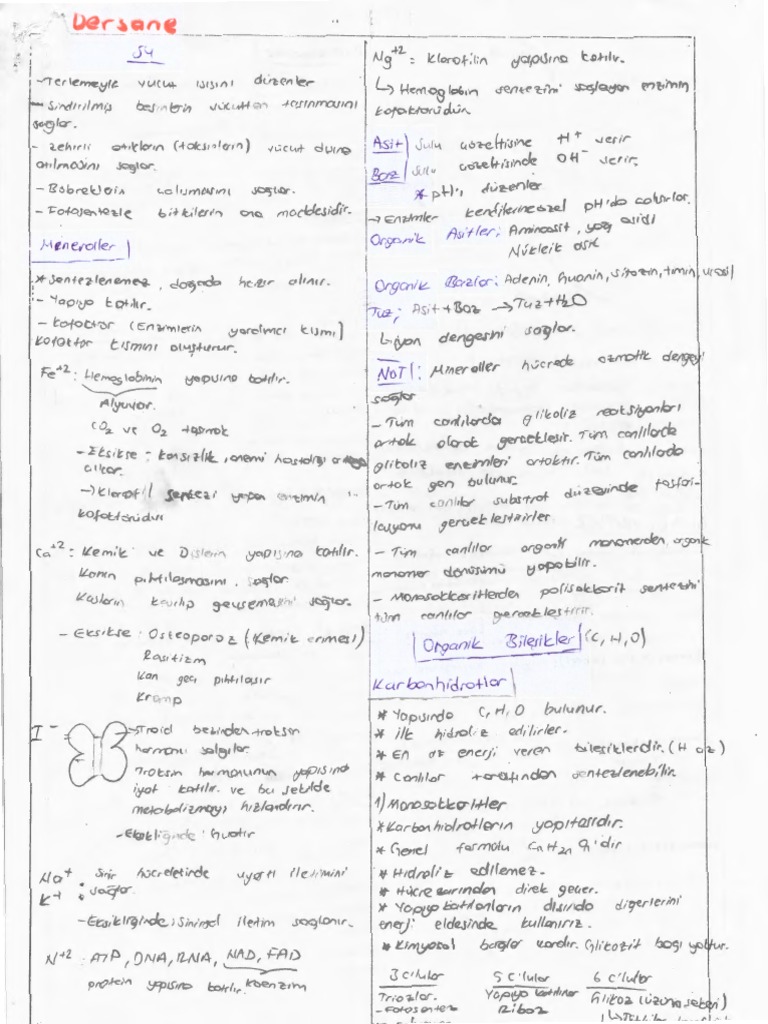 Dersane
Su
- Terlemeyle vücut ısısını düzenler
- Sindirilmiş besinlerin vücuttan taşınmasını
sağlar.
- Zehirli atıkların (toksinlerin) vücut dışına
atılmasını sağlar.
- Böbreklerin çalışmasını sağlar.
- Fotosentezle bitkilerin ana maddesidir.
Mineraller
* Sentezlenemez, doğada hazır alınır.
- Yapıya katılır.
- Kofaktör (Enzimlerin yardımcı kısmı)
kofaktör kısmını oluşturur.
Fe+2: Hemoglobinin yapısına katılır.
Alyuvar.
CO2 ve O2 taşımak
- Eksikse: kansızlık, anemi hastalığı ortaya
çıkar.
→ Klorofil sentezi yapan enzimin
kofaktörüdür
Ca+2: Kemik ve Dişlerin yapısına katılır.
Kanın pıhtılaşmasını sağlar
Kasların kasılıp gevşemesini sağlar.
- Eksikse: Osteoporoz (Kemik erimesi)
Raşitizm
Kan geç pıhtılaşır
Kramp
I-
Troid bezinden troksin
hormonu salgılar.
Troksin hormonunun yapısına
iyot katılır. ve bu şekilde
metabolizmayı hızlandırır.
- Eksikliğinde guatr
Na+ K+ : Sinir hücrelerinde uyartı iletimini
sağlar.
- Eksikliğinde; Sinirsel iletim sağlanır.
N+2: ATP, DNA, RNA, NAD, FAD
protein yapısına katılır. koenzim
Mg+2: Klorofilin yapısına katılır.
↳ Hemoglobin sentezini sağlayan enzimin
kofaktörüdür.
Asit Sulu çözeltisine H+ verir
Baz Sulu çözeltisinde OH- verir.
* pH'ı düzenler
→ Enzimler kendilerine özel pH'da çalışırlar.
Organik Asitler: Aminoasit, yağ asidi
Nükleik asit
Organik Bazlar: Adenin, Guanin, sitozin, timin, urasil
Tuz; Asit + Baz → Tuz + H2O
↳ iyon dengesini sağlar.
NOT: Mineraller hücrede ozmotik dengeyi
sağlar
- Tüm canlılarda glikoliz reaksiyonları
ortak olarak gerçekleşir. Tüm canlılarda
glikoliz enzimleri ortaktır. Tüm canlılarda
ortak gen bulunur.
- Tüm canlılar substrat düzeyinde fosfori-
lasyonu gerçekleştirirler
- Tüm canlılar organik monomerden, organik
monomer dönüşümü yapabilir.
- Monosakkaritlerden polisakkarit sentezini
tüm canlılar gerçekleştirir.
Organik Bileşikler (C, H, O)
Karbonhidratlar
* Yapısında C, H, O bulunur.
* ilk hidroliz edilirler.
* En az enerji veren bileşiklerdir. (H az)
* Canlılar tarafından sentezlenebilir.
1) Monosakkaritler
* Karbonhidratların yapıtaşıdır.
* Genel formülü CnH2nOn'dir
* Hidroliz edilemez.
* Hücre zarından direk geçer.
* Yapıya katılanların dışında diğerlerini
enerji eldesinde kullanırız.
* Kimyasal bağlar vardır. Glikozit bağı yoktur.
3 C'lular 5 C'lular 6 C'lular
Triozlar. Yapıya katılırlar Glikoz (üzüm şekeri)
- Fotosentez Riboz